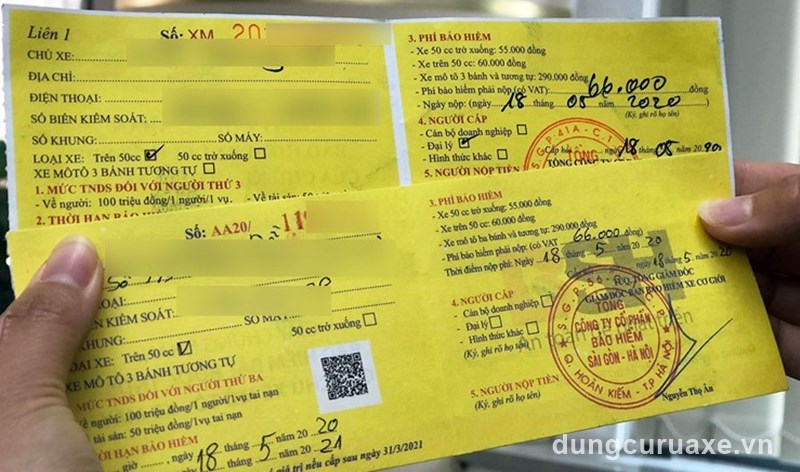 Liên 1
Số: XM 20
CHỦ XE:
ĐỊA CHỈ:
ĐIỆN THOẠI:
SỐ BIÊN KIỂM SOÁT:
SỐ KHUNG: SỐ MÁY:
LOẠI XE: Trên 50cc 50 cc trở xuống
XE MÔTÔ 3 BÁNH TƯƠNG TỰ
1. MỨC TNDS ĐỐI VỚI NGƯỜI THỨ 3
- Về người: 100 triệu đồng/1 người/1 vụ. - Về tài sản: 50
2. THỜI HẠN BẢO HIỂM
3. PHÍ BẢO HIỂM
- Xe 50 cc trở xuống: 55.000 đồng
- Xe trên 50 cc: 60.000 đồng
- Xe mô tô 3 bánh và tương tự: 290.000 đồng
- Phí bảo hiểm phải nộp (có VAT): 66.000 đồng
- Ngày nộp: (ngày 18 tháng 05 năm 2020)
(Ký, ghi rõ họ tên)
4. NGƯỜI CẤP
- Cán bộ doanh nghiệp
- Đại lý
- Hình thức khác
5. NGƯỜI NỘP TIỀN
S.G.P 41A - C.T
TỔNG
ngày 18 tháng 08 năm 20
Số: AA20/ 119
OẠI:
BIÊN KIỂM SOÁT:
KHUNG: SỐ MÁY
OẠI XE: Trên 50 cc 50 cc trở xuống
XE MÔ TÔ 3 BÁNH TƯƠNG TỰ
MỨC TNDS ĐỐI VỚI NGƯỜI THỨ BA
người: 100 triệu đồng/1 người/1vụ tai nạn
tài sản: 50 triệu đồng/1 vụ tai nạn
HẠN BẢO HIỂM
giờ, ngày 18 tháng 5 năm 20 20
18 tháng 5 năm 20 21
giá trị nếu cấp sau ngày 31/3/2021
3. PHÍ BẢO HIỂM
- Xe 50 cc trở xuống: 55.000 đồng
- Xe trên 50 cc: 60.000 đồng
- Xe mô tô ba bánh và tương tự: 290.000 đồng
- Phí bảo hiểm phải nộp: (có VAT 66.000 đồng)
Thời điểm nộp phí: Ngày 18 tháng 5 năm 20 20
ngày 18 tháng 5 năm 20
TỔNG GIÁM ĐỐC
GIÁM ĐỐC BAN BẢO HIỂM XE CƠ GIỚI
4. NGƯỜI CẤP
- Cán bộ doanh nghiệp
- Đại lý
- Hình thức khác:
(Ký, ghi rõ họ tên)
5. NGƯỜI NỘP TIỀN
(Ký, ghi rõ họ tên)
TỔNG
CÔNG TY CỔ PHẦN
BẢO HIỂM
SÀI GÒN - HÀ NỘI
Q. HOÀN KIẾM - T.P HÀ NỘI
Nguyễn Thọ Ân
dungcuruaxe.vn